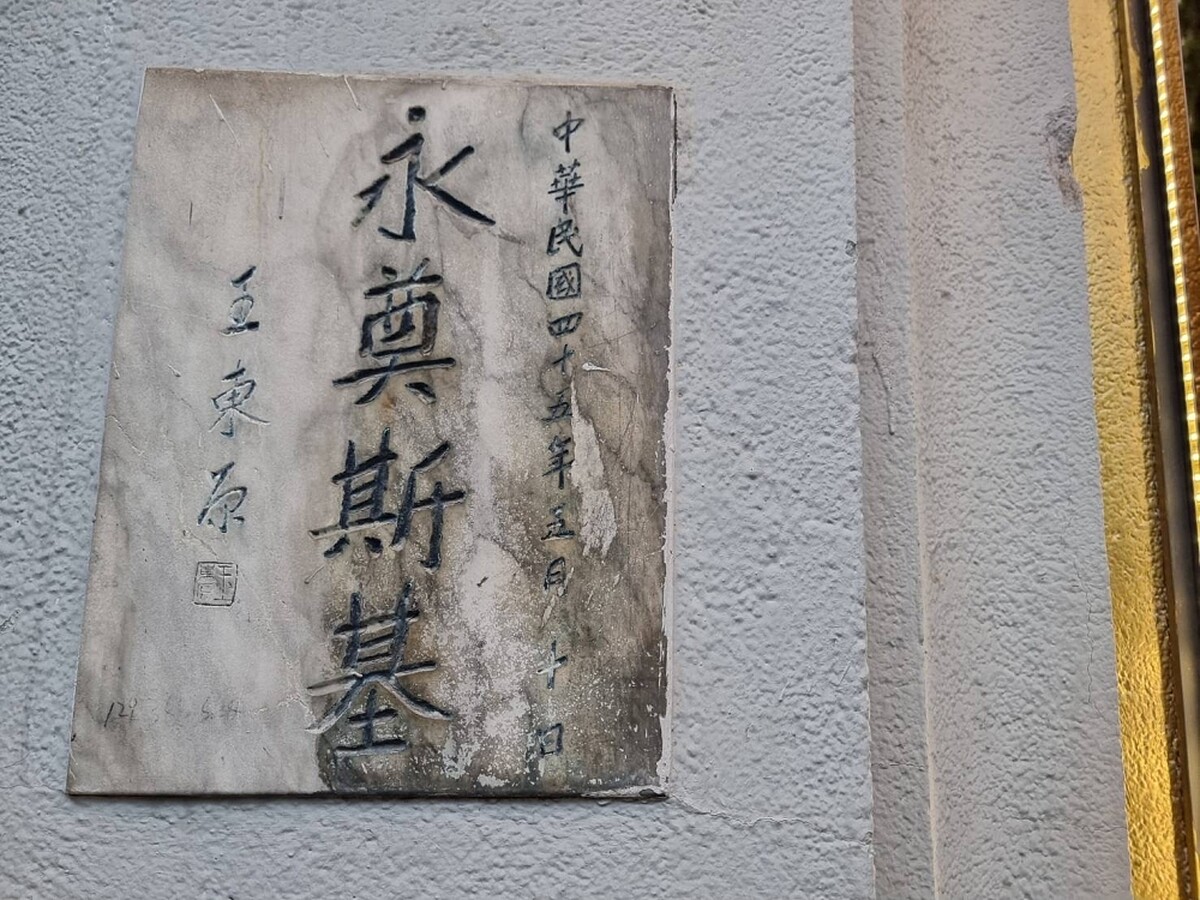 中華民國四十五年五月十日
永奠斯基
王東原